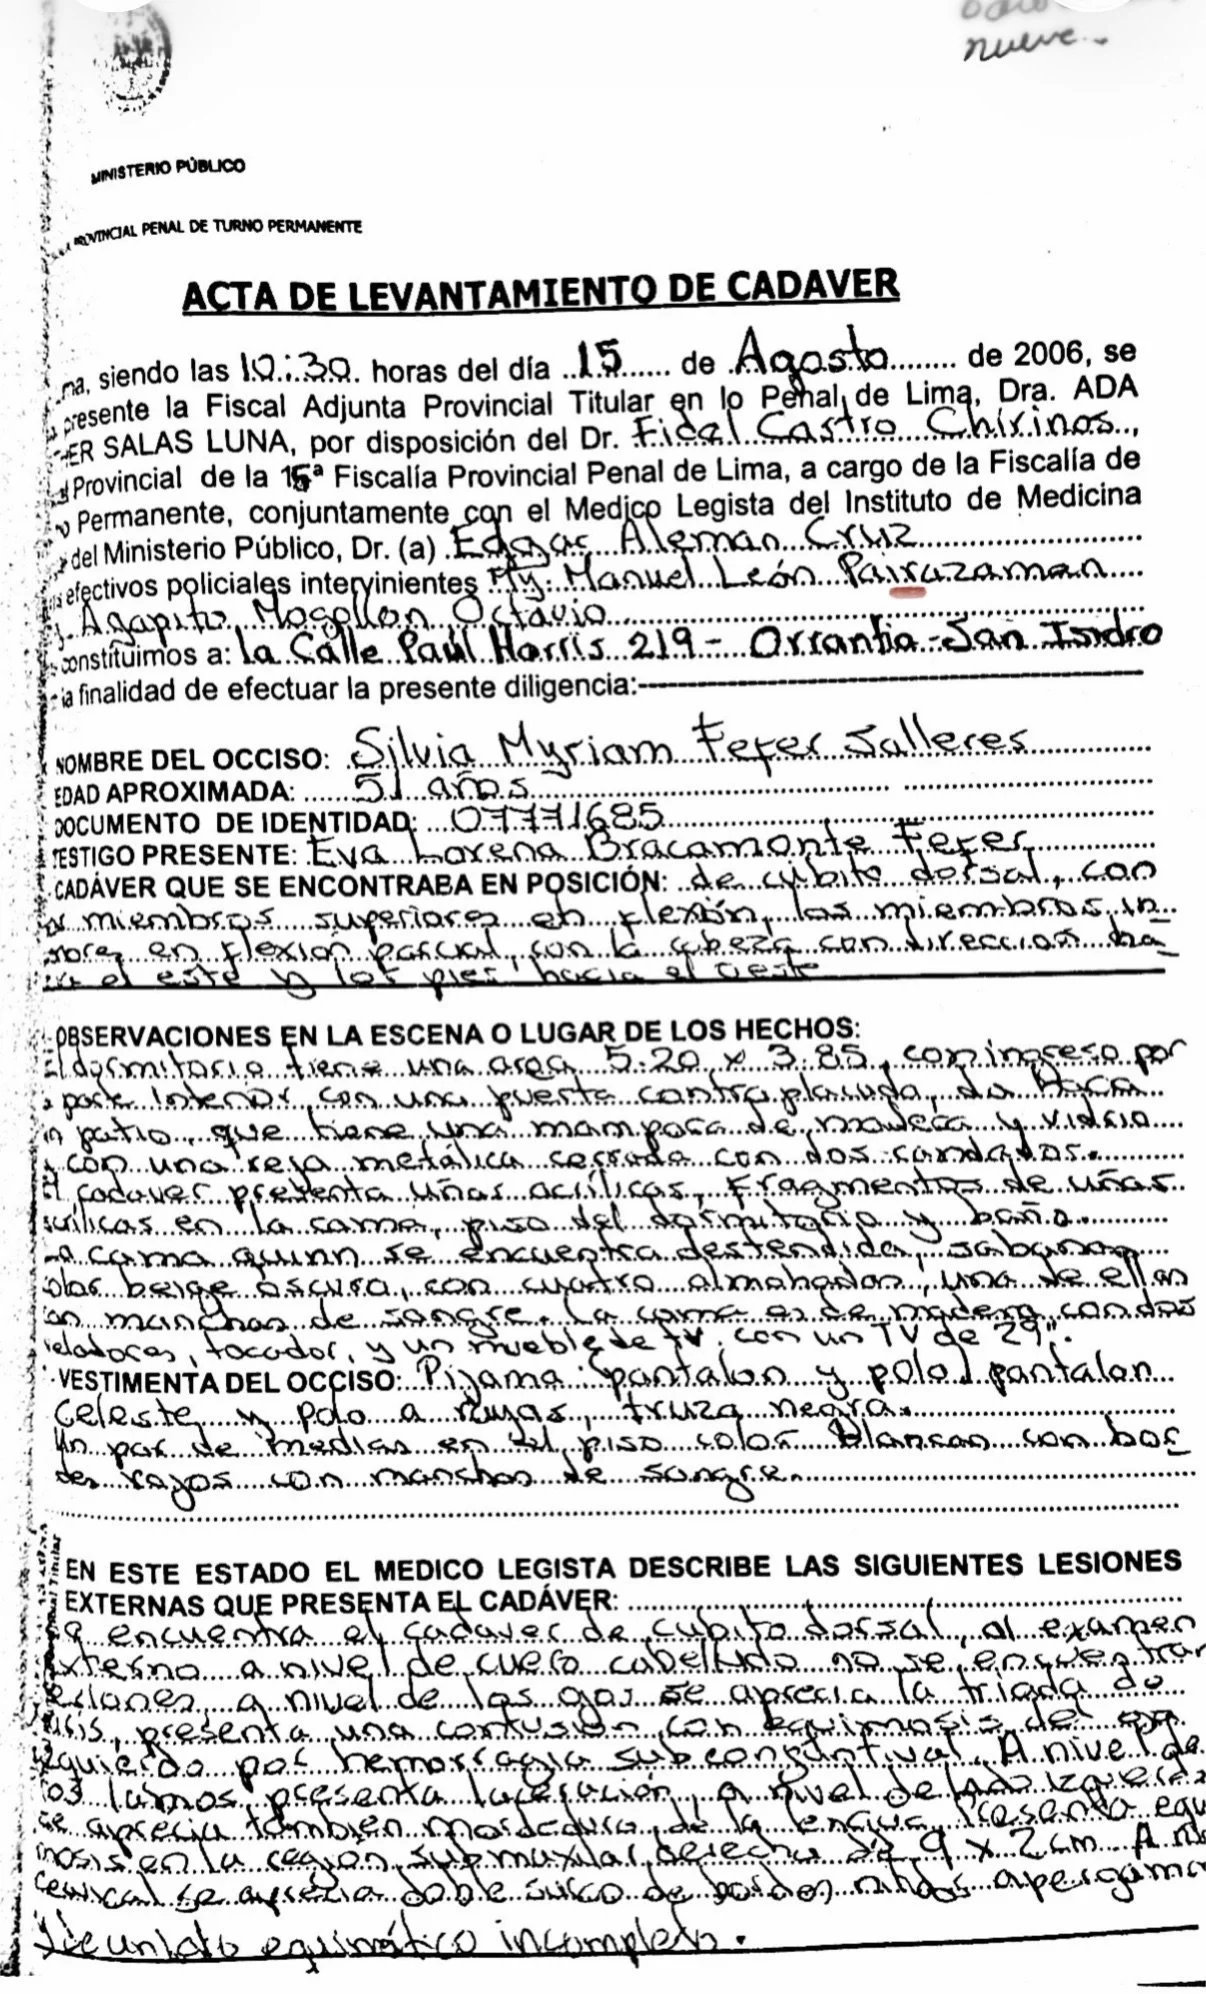 nueve.-
MINISTERIO PÚBLICO
PROVINCIAL PENAL DE TURNO PERMANENTE
ACTA DE LEVANTAMIENTO DE CADAVER
siendo las 10:30 horas del día 15 de Agosto de 2006, se
presente la Fiscal Adjunta Provincial Titular en lo Penal de Lima, Dra. ADA
ER SALAS LUNA, por disposición del Dr. Fidel Castro Chirinos,
Provincial de la 15ª Fiscalía Provincial Penal de Lima, a cargo de la Fiscalía de
Permanente, conjuntamente con el Medico Legista del Instituto de Medicina
del Ministerio Público, Dr. (a) Edgar Aleman Cruz
efectivos policiales intervinientes My. Manuel León Pairazaman
Agapito Mogollon Octavio
constituimos a: la Calle Paúl Harris 219 - Orrantia - San Isidro
la finalidad de efectuar la presente diligencia:
NOMBRE DEL OCCISO: Silvia Myriam Fefer Salleres
EDAD APROXIMADA: 51 años
DOCUMENTO DE IDENTIDAD: 07771685
TESTIGO PRESENTE: Eva Lorena Bracamonte Fefer
CADÁVER QUE SE ENCONTRABA EN POSICIÓN: de cubito dorsal, con
miembros superiores en flexión, los miembros in
en flexion parcial, con la cabeza con direccion ha
el este y los pies hacia el oeste
OBSERVACIONES EN LA ESCENA O LUGAR DE LOS HECHOS:
El dormitorio tiene una area 5.20 x 3.85, con ingreso por
parte interior, con una puerta contraplacada, da hacia
un patio, que tiene una mampara de madera y vidrio
y con una reja metálica cerrada con dos candados.
El cadaver presenta uñas acrílicas, fragmentos de uñas
acrílicas en la cama, piso del dormitorio y baño.
cama quinn se encuentra destendida, sabanas
color beige oscura, con cuatro almohadas, una de ellas
con manchas de sangre. La cama es de madera, con dos
veladores, tocador, y un mueble de TV. con un TV de 29".
VESTIMENTA DEL OCCISO: Pijama: pantalon y polo, pantalon
celeste y polo a rayas, truza negra.
Un par de medias en el piso color blancas con bor
des rayos con manchas de sangre.
EN ESTE ESTADO EL MEDICO LEGISTA DESCRIBE LAS SIGUIENTES LESIONES
EXTERNAS QUE PRESENTA EL CADÁVER:
encuentra el cadaver de cubito dorsal, al examen
externo a nivel de cuero cabelludo no se encuentran
lesiones, a nivel de los se aprecia la triada
presenta una contusión con equimosis del
izquierdo por hemorragia subconjuntival. A nivel de
los labios presenta laceración, a nivel de lado izquierdo
se aprecia tambien mordedura de la lengua, Presenta equi
mosis en la region submaxilar derecho de 9 x 2 cm. A ni
cervical se aprecia doble surco de bordes
equimótico incompleto.